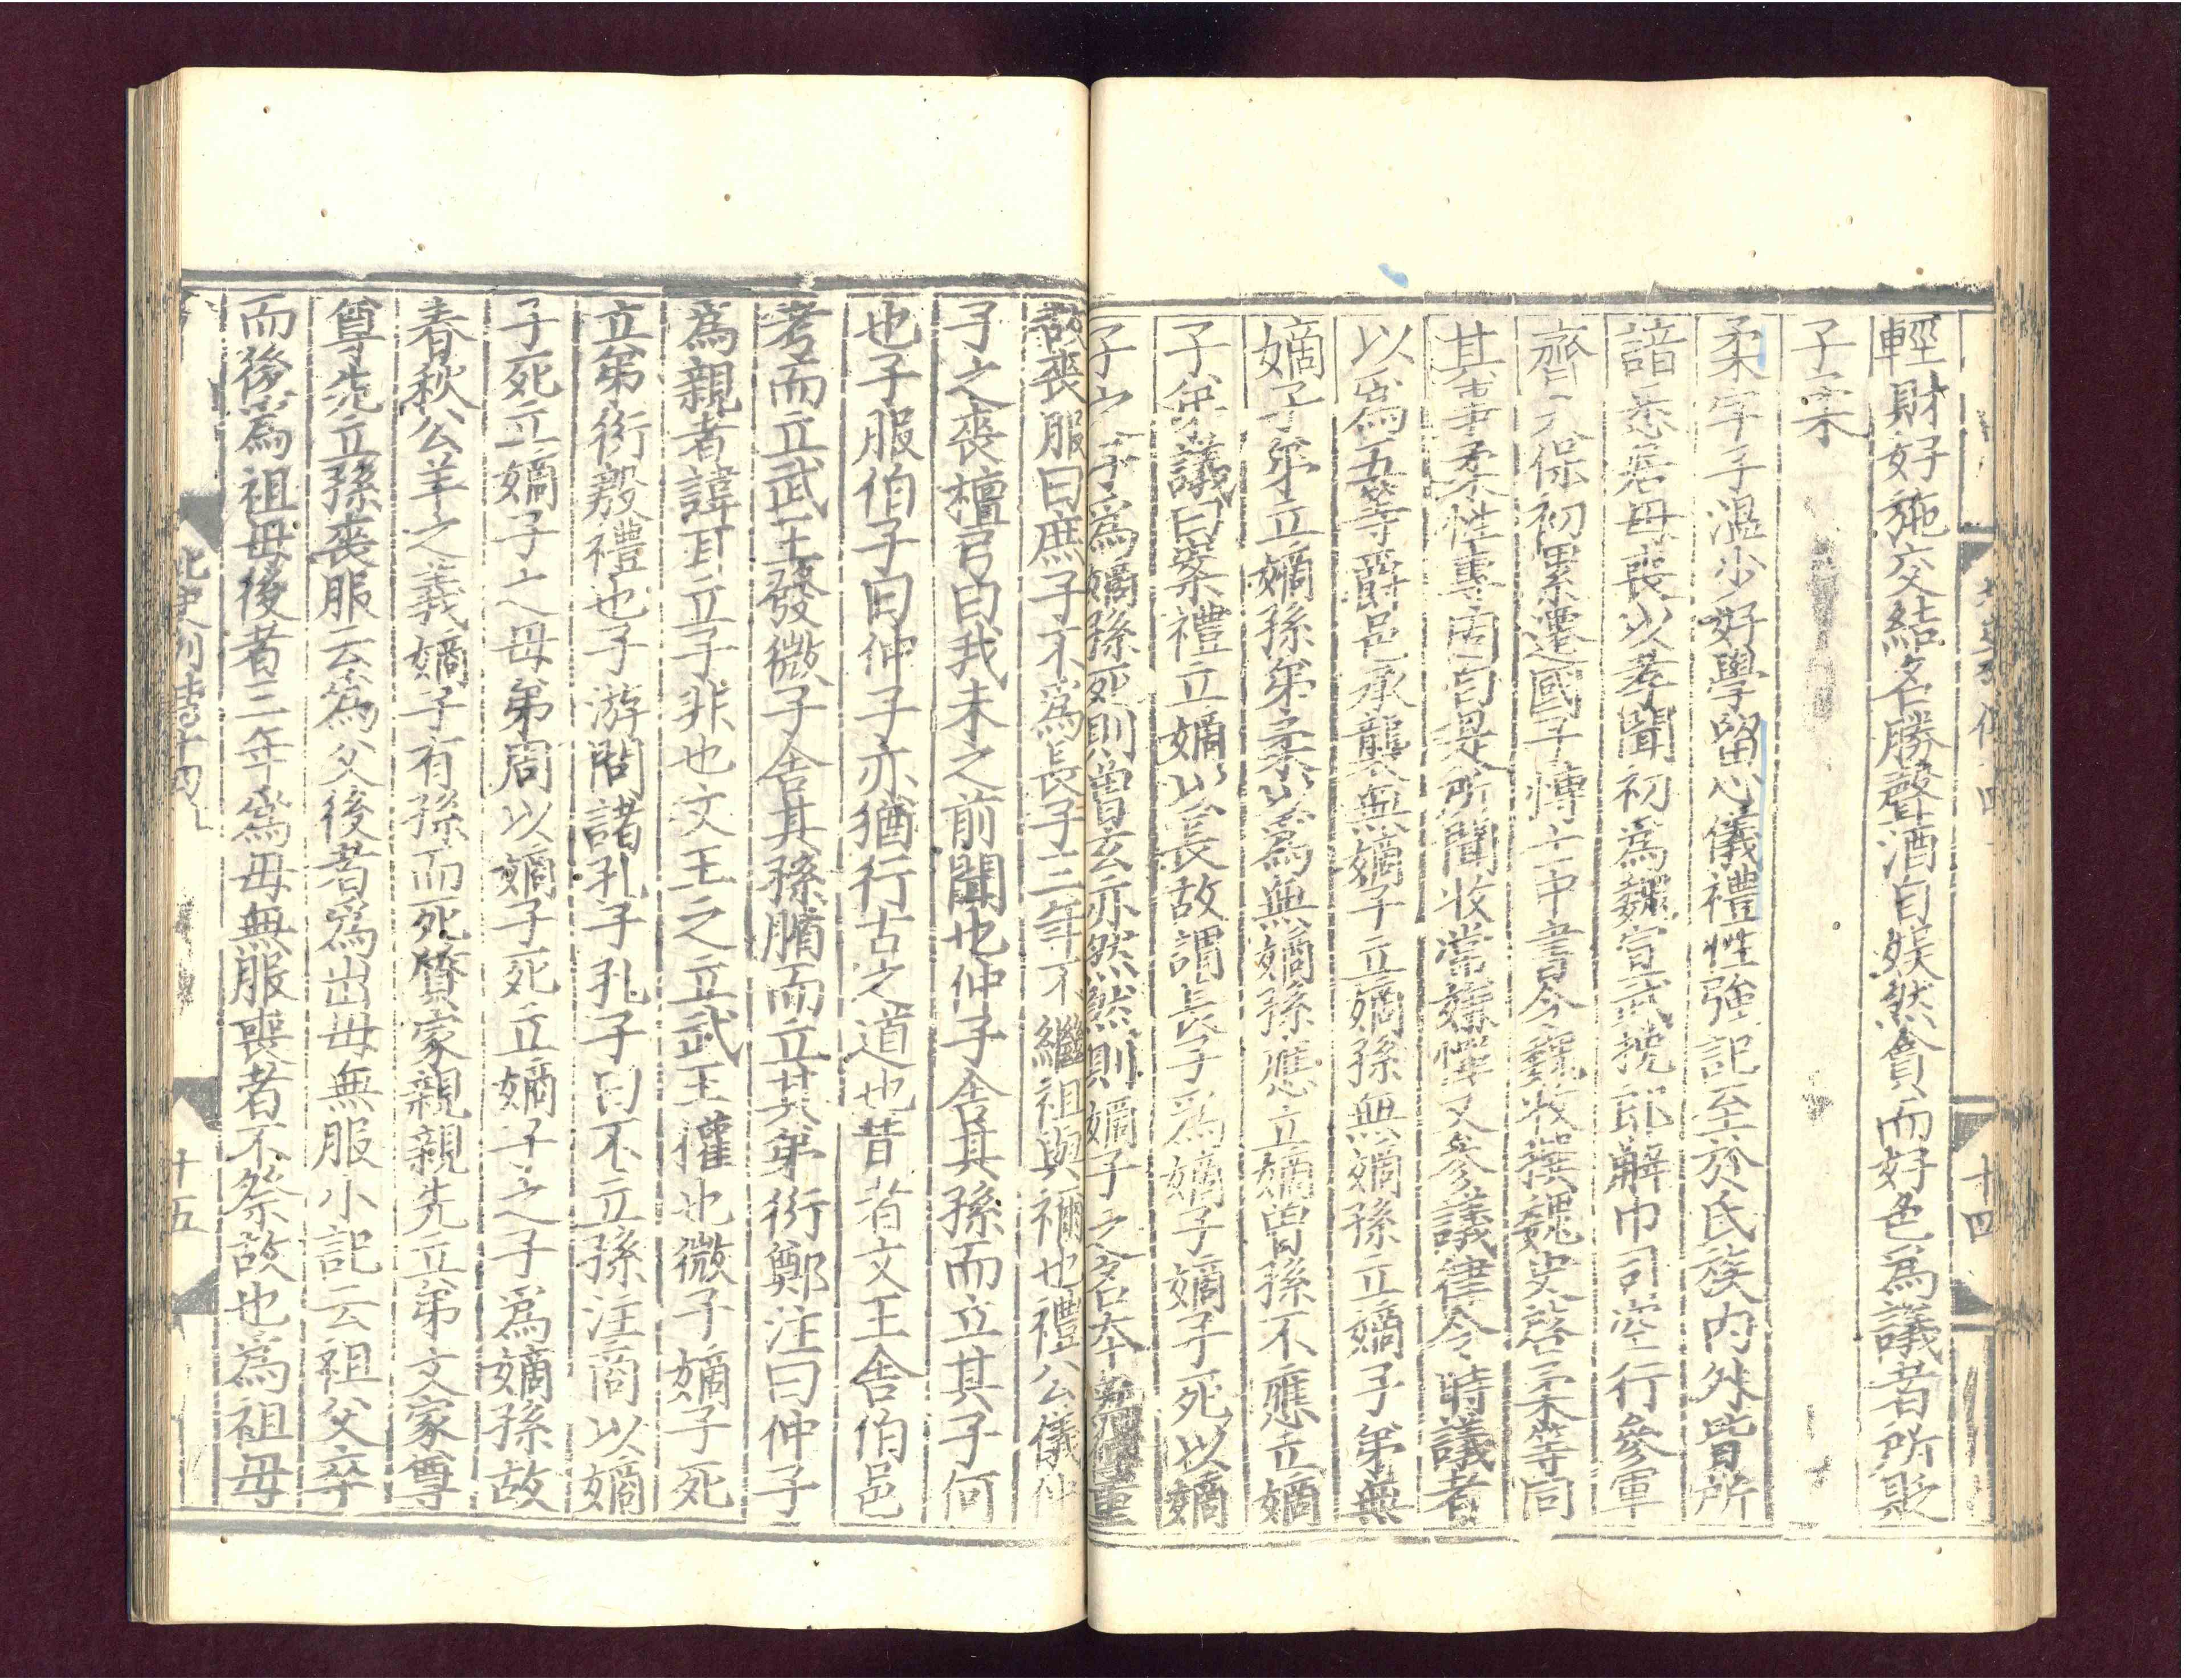 十四
輕財好施交結名勝聲酒自娛然貪而好色爲議者所貶
子柔
柔字子溫少好學留心儀禮性強記至於氏族內外皆所
諳悉居母喪以孝聞初為魏宣武挽郎解巾司空行參軍
齊天保初累遷國子博士中書令魏收撰魏史啓柔等同
其事柔性專固自是所聞收常嫌憚又參議律令時議者
以爲五等爵邑承襲無嫡子立嫡孫無嫡孫立嫡子弟無
嫡子弟立嫡孫弟柔以爲無嫡孫應立嫡曾孫不應立嫡
子弟議曰案禮立嫡以長故謂長子爲嫡子嫡子死以嫡
子之子爲嫡孫死則曾玄亦然然則嫡子之名本爲傳重
故喪服曰庶子不爲長子三年不繼祖與禰也禮公儀仲
子之喪檀弓曰我未之前聞也仲子舍其孫而立其子何
也子服伯子曰仲子亦猶行古之道也昔者文王舍伯邑
考而立武王發微子舍其孫腯而立其弟衍鄭注曰仲子
爲親者諱耳立子非也文王之立武王權也微子嫡子死
立弟衍殷禮也子游問諸孔子孔子曰不立孫注商以嫡
子死立嫡子之母弟周以嫡子死立嫡子之子爲嫡孫故
春秋公羊之義嫡子有孫而死質家親親先立弟文家尊
尊先立孫喪服云爲父後者爲出母無服小記云祖父卒
而後爲祖母後者三年爲母無服喪者不祭故也爲祖母
北史列傳十四
十五